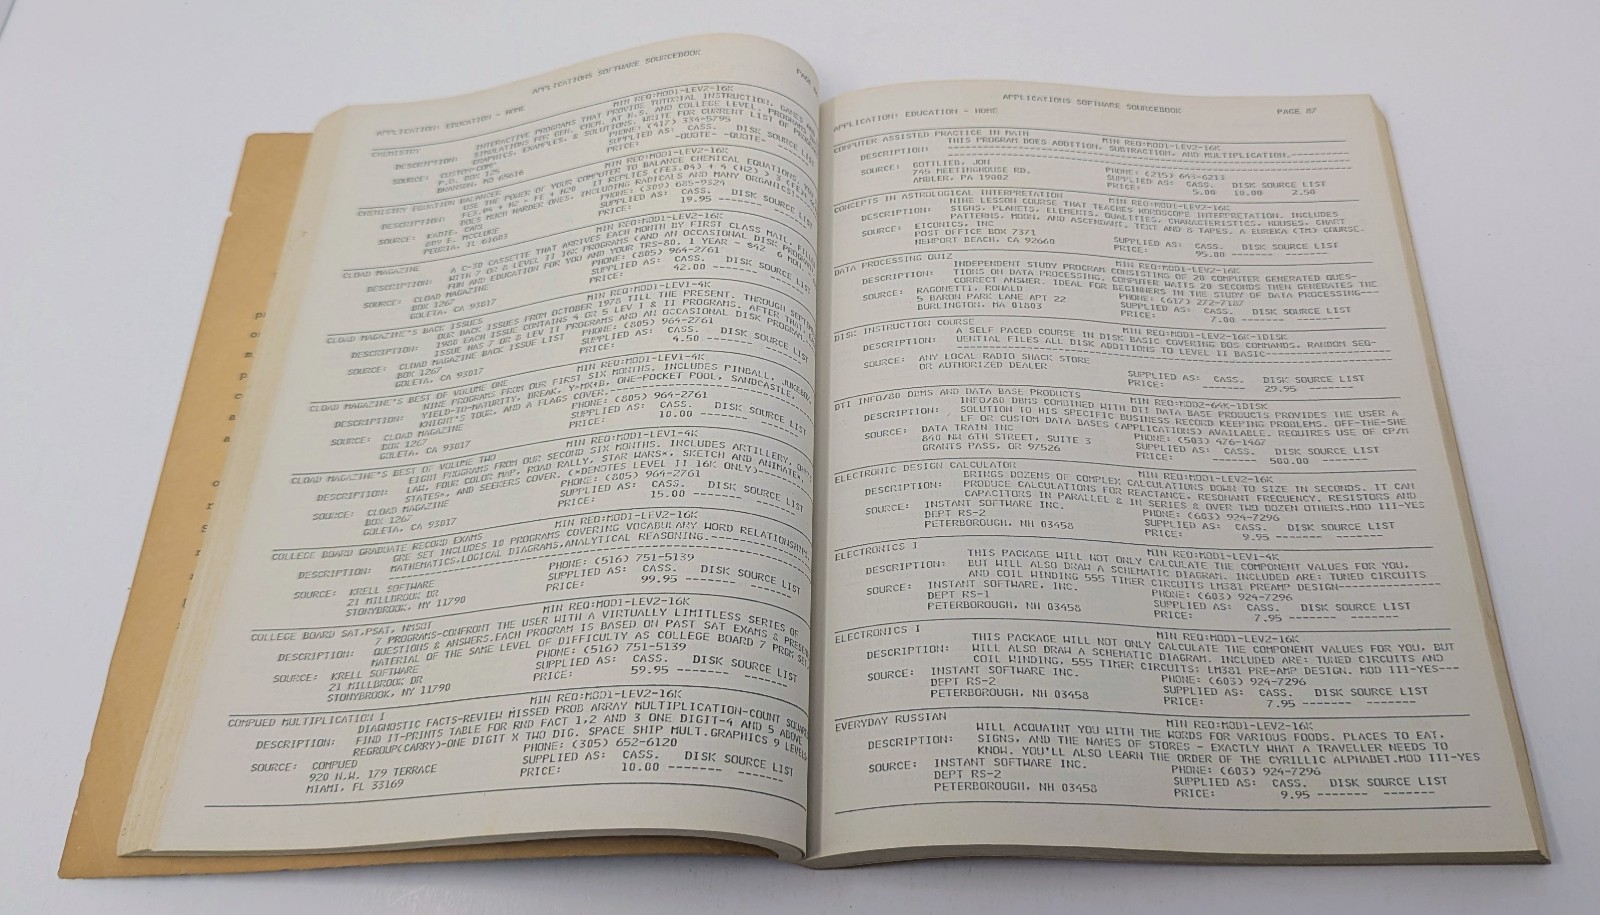 APPLICATIONS SOFTWARE SOURCEBOOK
APPLICATION: EDUCATION - HOME
CHEMISTRY MIN REQ:MOD1-LEV2-16K
DESCRIPTION: INTERACTIVE PROGRAMS THAT PROVIDE TUTORIAL INSTRUCTION,
SIMULATIONS FOR GEN. CHEM. AT H.S. AND COLLEGE LEVEL.
GRAPHICS, EXAMPLES, & SOLUTIONS. WRITE FOR CURRENT LIST OF
SOURCE: CUSTOM COMP PHONE: (417) 334-5795
P.O. BOX 125 SUPPLIED AS: CASS. DISK SOURCE LIST
BRANSON, MO 65616 PRICE: -QUOTE- -QUOTE-
CHEMISTRY EQUATION BALANCER MIN REQ:MOD1-LEV2-16K
DESCRIPTION: USE THE POWER OF YOUR COMPUTER TO BALANCE CHEMICAL EQUATIONS.
IT REPLIES (FE3.O4) + 4 (H2) > 3
DOES MUCH HARDER ONES, INCLUDING RADICALS AND MANY ORGANICS
SOURCE: PHONE: (309) 685-9324
809 E. MCCLURE SUPPLIED AS: CASS. DISK SOURCE LIST
PEORIA, IL 61603 PRICE: 19.95
CLOAD MAGAZINE MIN REQ:MOD1-LEV2-16K
DESCRIPTION: A C-30 CASSETTE THAT ARRIVES EACH MONTH BY FIRST CLASS MAIL,
WITH 7 OR 8 LEVEL II 16K PROGRAMS (AND AN OCCASIONAL DISK
FUN AND EDUCATION FOR YOU AND YOUR TRS-80. 1 YEAR - $42
SOURCE: CLOAD MAGAZINE PHONE: (805) 964-2761
BOX 1267 SUPPLIED AS: CASS. DISK SOURCE LIST
GOLETA, CA 93017 PRICE: 42.00 ------- -------
CLOAD MAGAZINE'S BACK ISSUES MIN REQ:MOD1-LEV1-4K
DESCRIPTION: OUR BACK ISSUES FROM OCTOBER 1978 TILL THE PRESENT. THROUGH
1980 EACH ISSUE CONTAINS 4 OR 5 LEV I & II PROGRAMS. AFTER
ISSUE HAS 7 OR 8 LEV II PROGRAMS AND AN OCCASIONAL DISK PROGRAM.
SOURCE: CLOAD MAGAZINE BACK ISSUE LIST PHONE: (805) 964-2761
BOX 1267 SUPPLIED AS: CASS. DISK SOURCE LIST
GOLETA, CA 93017 PRICE: 4.50 ------- -------
CLOAD MAGAZINE'S BEST OF VOLUME ONE MIN REQ:MOD1-LEV1-4K
DESCRIPTION: NINE PROGRAMS FROM OUR FIRST SIX MONTHS. INCLUDES PINBALL,
YIELD-TO-MATURITY, BREAK, Y=MX+B, ONE-POCKET POOL, SANDCASTLE,
KNIGHT'S TOUR, AND A FLAGS COVER.
SOURCE: CLOAD MAGAZINE PHONE: (805) 964-2761
BOX 1267 SUPPLIED AS: CASS. DISK SOURCE LIST
GOLETA, CA 93017 PRICE: 10.00 ------- -------
CLOAD MAGAZINE'S BEST OF VOLUME TWO MIN REQ:MOD1-LEV1-4K
DESCRIPTION: EIGHT PROGRAMS FROM OUR SECOND SIX MONTHS. INCLUDES ARTILLERY,
LAW, FOUR COLOR MAP, ROAD RALLY, STAR WARS*, SKETCH AND ANIMATE,
STATES*, AND SEEKERS COVER. (*DENOTES LEVEL II 16K ONLY)
SOURCE: CLOAD MAGAZINE PHONE: (805) 964-2761
BOX 1267 SUPPLIED AS: CASS. DISK SOURCE LIST
GOLETA, CA 93017 PRICE: 15.00 ------- -------
COLLEGE BOARD GRADUATE RECORD EXAMS MIN REQ:MOD1-LEV2-16K
DESCRIPTION: GRE SET INCLUDES 10 PROGRAMS COVERING VOCABULARY WORD RELATIONSHIP
MATHEMATICS,LOGICAL DIAGRAMS,ANALYTICAL REASONING.
SOURCE: KRELL SOFTWARE PHONE: (516) 751-5139
21 MILLBROOK DR SUPPLIED AS: CASS. DISK SOURCE LIST
STONYBROOK, NY 11790 PRICE: 99.95 ------- -------
COLLEGE BOARD SAT,PSAT, NMSQT MIN REQ:MOD1-LEV2-16K
DESCRIPTION: 7 PROGRAMS-CONFRONT THE USER WITH A VIRTUALLY LIMITLESS SERIES OF
QUESTIONS & ANSWERS.EACH PROGRAM IS BASED ON PAST SAT EXAMS & PRESENT
MATERIAL OF THE SAME LEVEL OF DIFFICULTY AS COLLEGE BOARD 7 PRGM SET
SOURCE: KRELL SOFTWARE PHONE: (516) 751-5139
21 MILLBROOK DR SUPPLIED AS: CASS. DISK SOURCE LIST
STONYBROOK, NY 11790 PRICE: 59.95 ------- -------
COMPUED MULTIPLICATION I MIN REQ:MOD1-LEV2-16K
DESCRIPTION: DIAGNOSTIC FACTS-REVIEW MISSED PROB ARRAY MULTIPLICATION-COUNT SQUARES
FIND IT-PRINTS TABLE FOR RND FACT 1,2 AND 3 ONE DIGIT-4 AND 5 ABOVE
REGROUP(CARRY)-ONE DIGIT X TWO DIG. SPACE SHIP MULT.GRAPHICS 9 LEVELS
SOURCE: COMPUED PHONE: (305) 652-6120
920 N.W. 179 TERRACE SUPPLIED AS: CASS. DISK SOURCE LIST
MIAMI, FL 33169 PRICE: 10.00 ------- -------
APPLICATIONS SOFTWARE SOURCEBOOK PAGE 87
APPLICATION: EDUCATION - HOME
COMPUTER ASSISTED PRACTICE IN MATH MIN REQ:MOD1-LEV2-16K
DESCRIPTION: THIS PROGRAM DOES ADDITION, SUBTRACTION, AND MULTIPLICATION.
SOURCE: GOTTLIEB, JON PHONE: (215) 643-6213
745 MEETINGHOUSE RD. SUPPLIED AS: CASS. DISK SOURCE LIST
AMBLER, PA 19002 PRICE: 5.00 10.00 2.50
CONCEPTS IN ASTROLOGICAL INTERPRETATION MIN REQ:MOD1-LEV2-16K
DESCRIPTION: NINE LESSON COURSE THAT TEACHES HOROSCOPE INTERPRETATION. INCLUDES
SIGNS, PLANETS, ELEMENTS, QUALITIES, CHARACTERISTICS, HOUSES, CHART
PATTERNS, MOON, AND ASCENDANT. TEXT AND 8 TAPES. A EUREKA (TM) COURSE.
SOURCE: ETCONICS, INC
POST OFFICE BOX 7371 SUPPLIED AS: CASS. DISK SOURCE LIST
NEWPORT BEACH, CA 92660 PRICE: 95.00 ------- -------
DATA PROCESSING QUIZ MIN REQ:MOD1-LEV2-16K
DESCRIPTION: INDEPENDENT STUDY PROGRAM CONSISTING OF 20 COMPUTER GENERATED QUES-
TIONS ON DATA PROCESSING. COMPUTER WAITS 20 SECONDS THEN GENERATES THE
CORRECT ANSWER. IDEAL FOR BEGINNERS IN THE STUDY OF DATA PROCESSING---
SOURCE: RAGONETTI, RONALD PHONE: (617) 272-7187
5 BARON PARK LANE APT 22 SUPPLIED AS: CASS. DISK SOURCE LIST
BURLINGTON, MA 01803 PRICE: 7.00 ------- -------
DISK INSTRUCTION COURSE MIN REQ:MOD1-LEV2-16K-1DISK
DESCRIPTION: A SELF PACED COURSE IN DISK BASIC COVERING DOS COMMANDS, RANDOM SEQ-
UENTIAL FILES ALL DISK ADDITIONS TO LEVEL II BASIC
SOURCE: ANY LOCAL RADIO SHACK STORE
OR AUTHORIZED DEALER SUPPLIED AS: CASS. DISK SOURCE LIST
PRICE: ------- 29.95 -------
DTI INFO/80 DBMS AND DATA BASE PRODUCTS MIN REQ:MOD2-64K-1DISK
DESCRIPTION: INFO/80 DBMS COMBINED WITH DTI DATA BASE PRODUCTS PROVIDES THE USER A
SOLUTION TO HIS SPECIFIC BUSINESS RECORD KEEPING PROBLEMS. OFF-THE-SHE
LF OR CUSTOM DATA BASES (APPLICATIONS) AVAILABLE. REQUIRES USE OF CP/M
SOURCE: DATA TRAIN INC PHONE: (503) 476-1467
840 NW 6TH STREET, SUITE 3 SUPPLIED AS: CASS. DISK SOURCE LIST
GRANTS PASS, OR 97526 PRICE: ------- 500.00 -------
ELECTRONIC DESIGN CALCULATOR MIN REQ:MOD1-LEV2-16K
DESCRIPTION: BRINGS DOZENS OF COMPLEX CALCULATIONS DOWN TO SIZE IN SECONDS. IT CAN
PRODUCE CALCULATIONS FOR REACTANCE, RESONANT FREQUENCY, RESISTORS AND
CAPACITORS IN PARALLEL & IN SERIES & OVER TWO DOZEN OTHERS.MOD III-YES
SOURCE: INSTANT SOFTWARE INC. PHONE: (603) 924-7296
DEPT RS-2 SUPPLIED AS: CASS. DISK SOURCE LIST
PETERBOROUGH, NH 03458 PRICE: 9.95 ------- -------
ELECTRONICS I MIN REQ:MOD1-LEV1-4K
DESCRIPTION: THIS PACKAGE WILL NOT ONLY CALCULATE THE COMPONENT VALUES FOR YOU,
BUT WILL ALSO DRAW A SCHEMATIC DIAGRAM. INCLUDED ARE: TUNED CIRCUITS
AND COIL WINDING 555 TIMER CIRCUITS LM381 PREAMP DESIGN
SOURCE: INSTANT SOFTWARE, INC. PHONE: (603) 924-7296
DEPT RS-1 SUPPLIED AS: CASS. DISK SOURCE LIST
PETERBOROUGH, NH 03458 PRICE: 7.95 ------- -------
ELECTRONICS I MIN REQ:MOD1-LEV2-16K
DESCRIPTION: THIS PACKAGE WILL NOT ONLY CALCULATE THE COMPONENT VALUES FOR YOU, BUT
WILL ALSO DRAW A SCHEMATIC DIAGRAM. INCLUDED ARE: TUNED CIRCUITS AND
COIL WINDING, 555 TIMER CIRCUITS; LM381 PRE-AMP DESIGN. MOD III-YES---
SOURCE: INSTANT SOFTWARE INC. PHONE: (603) 924-7296
DEPT RS-2 SUPPLIED AS: CASS. DISK SOURCE LIST
PETERBOROUGH, NH 03458 PRICE: 7.95 ------- -------
EVERYDAY RUSSIAN MIN REQ:MOD1-LEV2-16K
DESCRIPTION: WILL ACQUAINT YOU WITH THE WORDS FOR VARIOUS FOODS, PLACES TO EAT,
SIGNS, AND THE NAMES OF STORES - EXACTLY WHAT A TRAVELLER NEEDS TO
KNOW. YOU'LL ALSO LEARN THE ORDER OF THE CYRILLIC ALPHABET.MOD III-YES
SOURCE: INSTANT SOFTWARE INC. PHONE: (603) 924-7296
DEPT RS-2 SUPPLIED AS: CASS. DISK SOURCE LIST
PETERBOROUGH, NH 03458 PRICE: 9.95 ------- -------